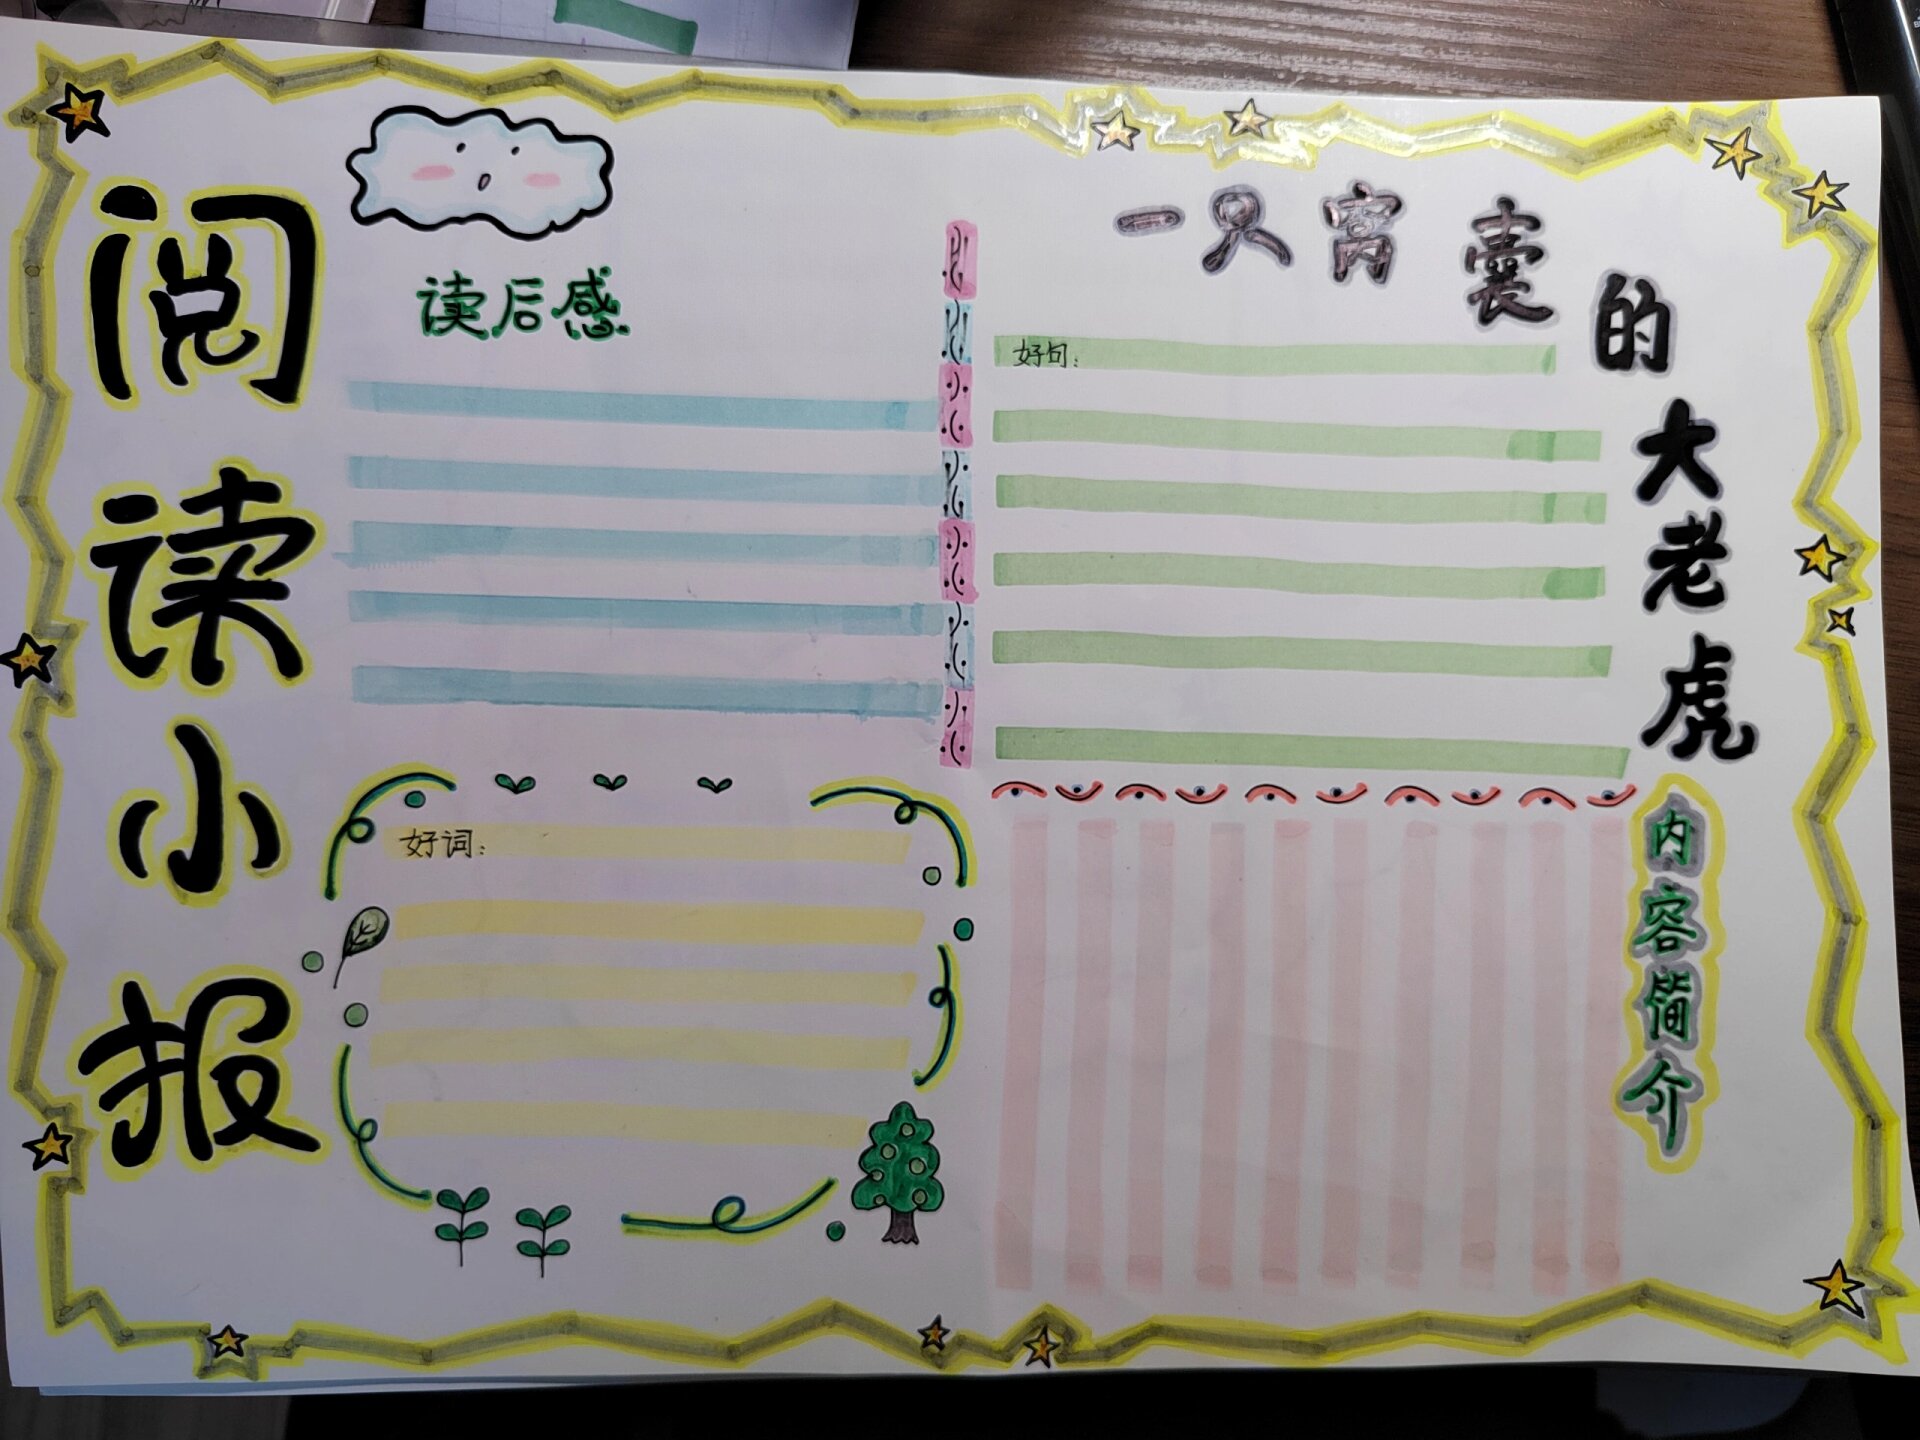 阅读小报
读后感
一只窝囊的大老虎
好句：
好词：
内容简介